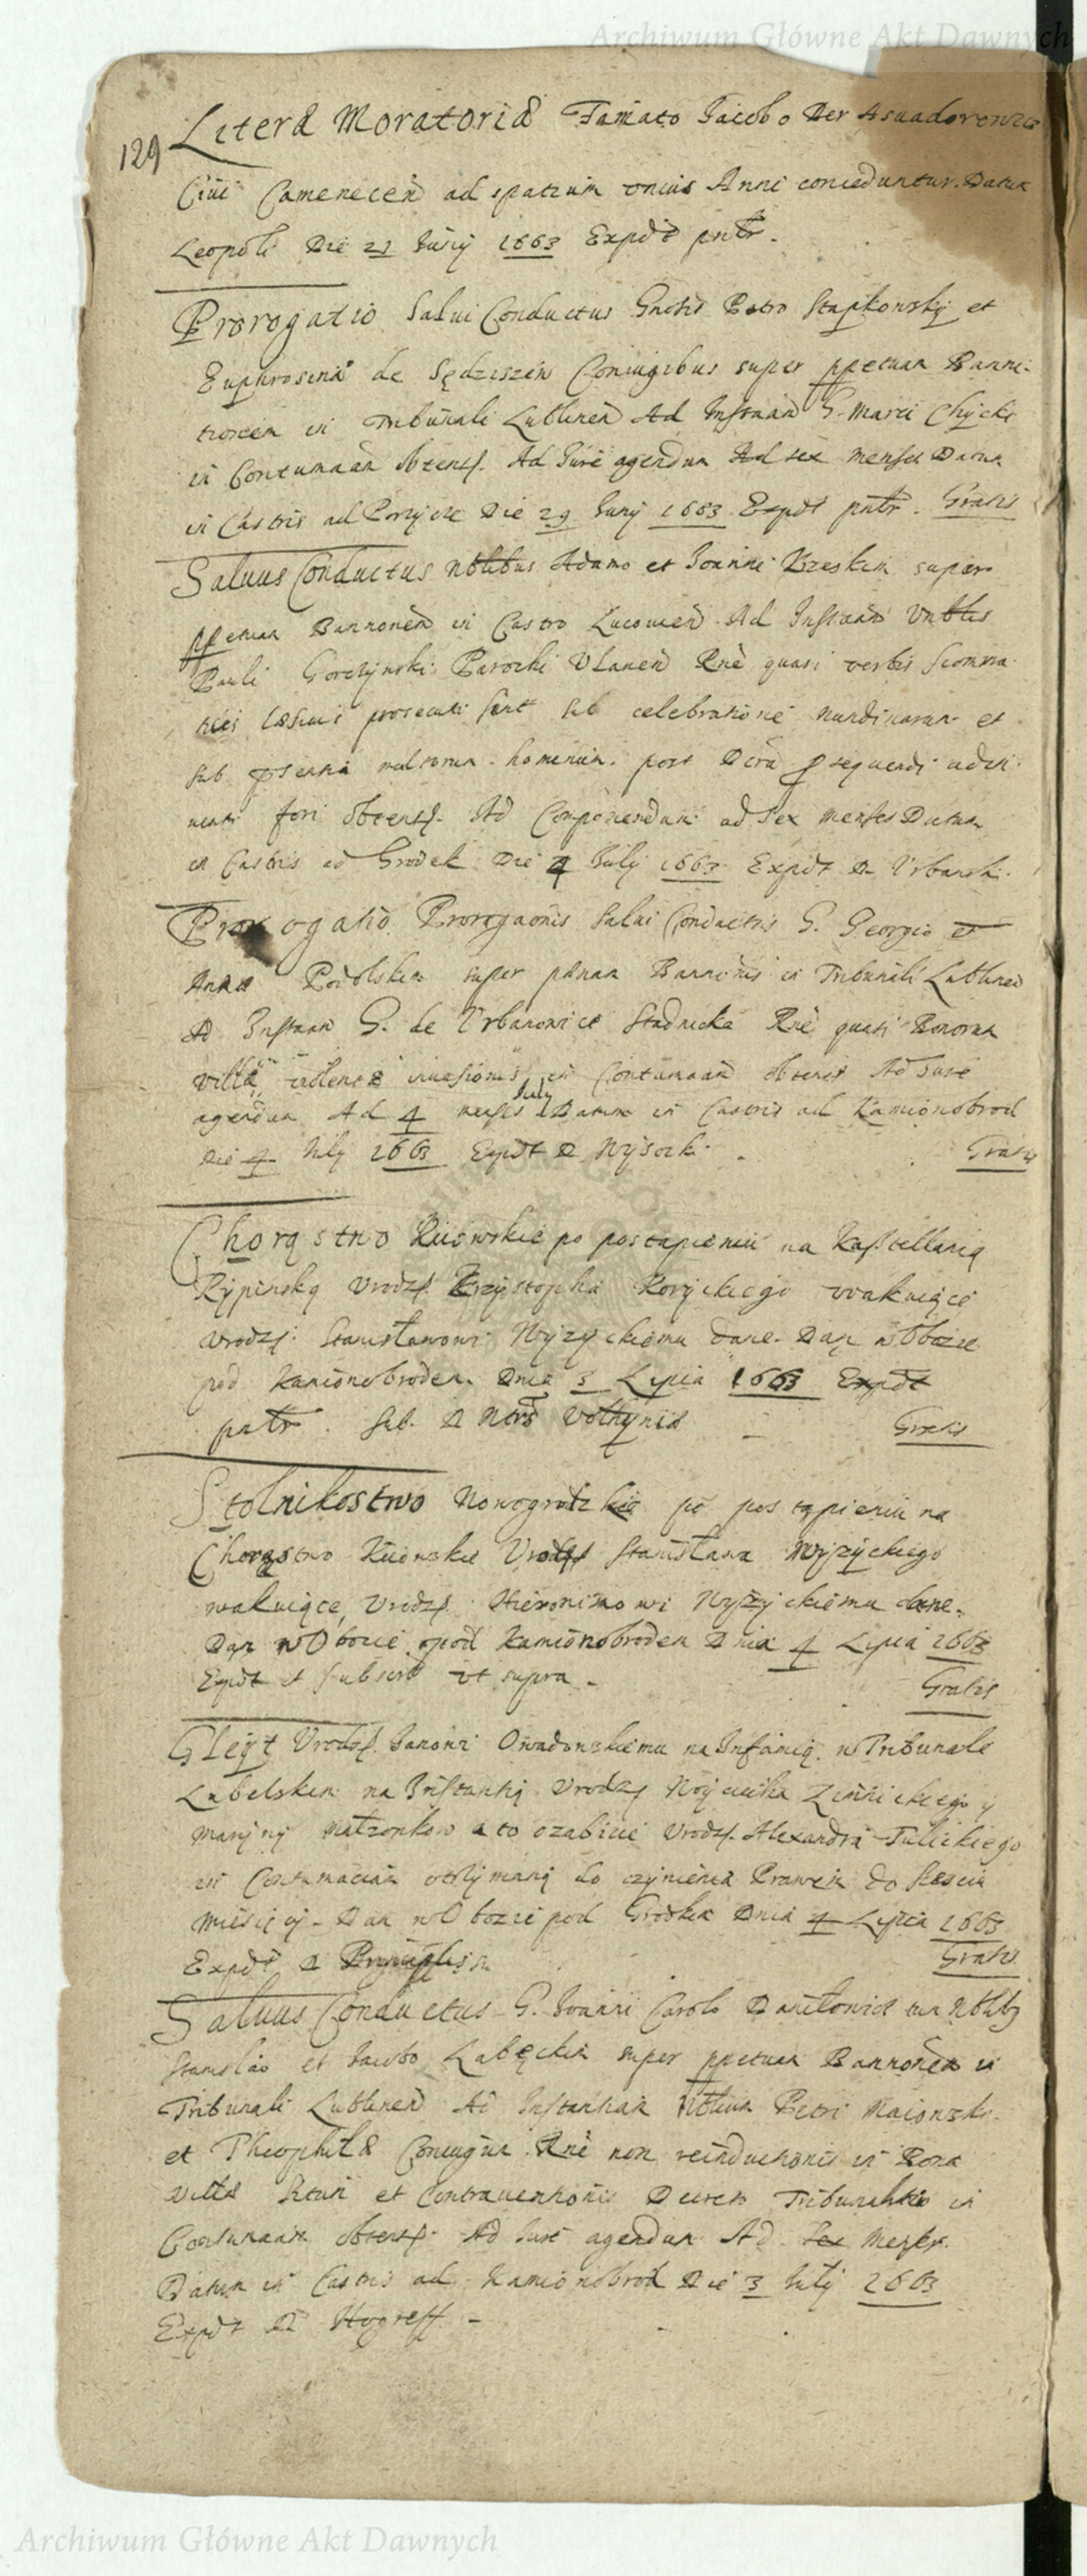 Archiwum Główne Akt Dawnych
129
Literæ Moratoriæ Famato Jacobo Der Asuadorowicz
Ciui Camenecen ad spatium vnius Anni conceduntur. Datum
Leopoli Die 21 Junij 1663 Expdt pntr.
Prorogatio Salui Conductus Gnosis Petro Stapkowskij et
Euphrosinæ de Sędziszew Coniugibus super ppetuam Banni-
tionem in Tribunali Lublinen Ad Instaan G. Marci Chycki
in Contumaan obtens. Ad Jure agendum Ad sex menses Datum
in Castris ad Die 29 Junij 1663 Expdt pntr. Gratis
Saluus Conductus Nblibus Adamo et Joanni Krzeskim super
ppetuam Bannonem in Castro Lucouien Ad Instaan Vnblis
Pauli Gorczynski Parochi Vlanen Rne quasi verbis scomma-
ticis læsiuis prosecuti sint sub celebratione nundinarum et
sub psentia multorum hominum. post Decta psequendi adue-
nienti fori obtens. Ad Componendum ad sex menses Datum
in Castris ad Grodek Die 4 July 1663 Expdt D. Vrbanski.
Prorogatio Prorogaonis Salui Conductus G. Georgio et
Annæ Podolskim super pænam Bannonis in Tribunali Lublinen
Ad Instaan G. de Vrbanowice Stadnicka Rne quasi Bonorum
villæ violentæ inuasionis in Contumaan obtentis Ad Jure
agendum Ad 4 menses Datum in Castris ad Kamionobrod
July
Die 4 July 1663 Expdt D Wysocki. Gratis
Chorąstwo Kiiowskie po postąpieniu na Kasztellanią
Rypinską Vrodzs. Krzysztopha Koryckiego wakuiące
Vrodzs. Stanisławowi Wyzyckiemu dane. Dan w Obozie
pod Kamionobrodem. Dnia 3 Lipca 1663 Expdt
pntr. Sub. D Nors Volhyniæ Gratis
Stolnikostwo Nowogrodzkie po postąpieniu na
Chorąstwo Kiiowskie Vrodzs Stanisława Wyzyckiego
wakuiące, Vrodzs. Hieronimowi Wyzyckiemu dane.
Dan w Obozie pod Kamionobrodem Dnia 4 Lipca 1663
Expdt et subscr vt supra. Gratis
Gleyt Vrodzs. Janowi Owadowskiemu na Infamią w Tribunale
Lubelskim na Instantią Vrodzs Woyciecha Zimnickiego y
Maryny Małzonkow a to o zabicie Vrodzs. Alexandra Tulickiego
in Contumaciam otrzymaną do czynienia Prawem do szesciu
miesięcy. Dan w Obozie pod Grodkiem Dnia 4 Lipca 1663
Expdt D Gratis
Saluus Conductus G. Joanni Carolo Daniłowicz tum Nblibz
Stanislao et Jacobo Łabęckim super ppetuam Bannonem in
Tribunali Lublinen Ad Instantiam Nblium Petri Maiowski.
et Theophilæ Coniugum Rne non reinductionis in Bona
Villæ et Contrauentionis Decreto Tribunalitio in
Contumaan obtens. Ad Jure agendum Ad Sex menses.
Datum in Castris ad Kamionobrod Die 3 July 1663
Expdt D Hogreff
Archiwum Główne Akt Dawnych